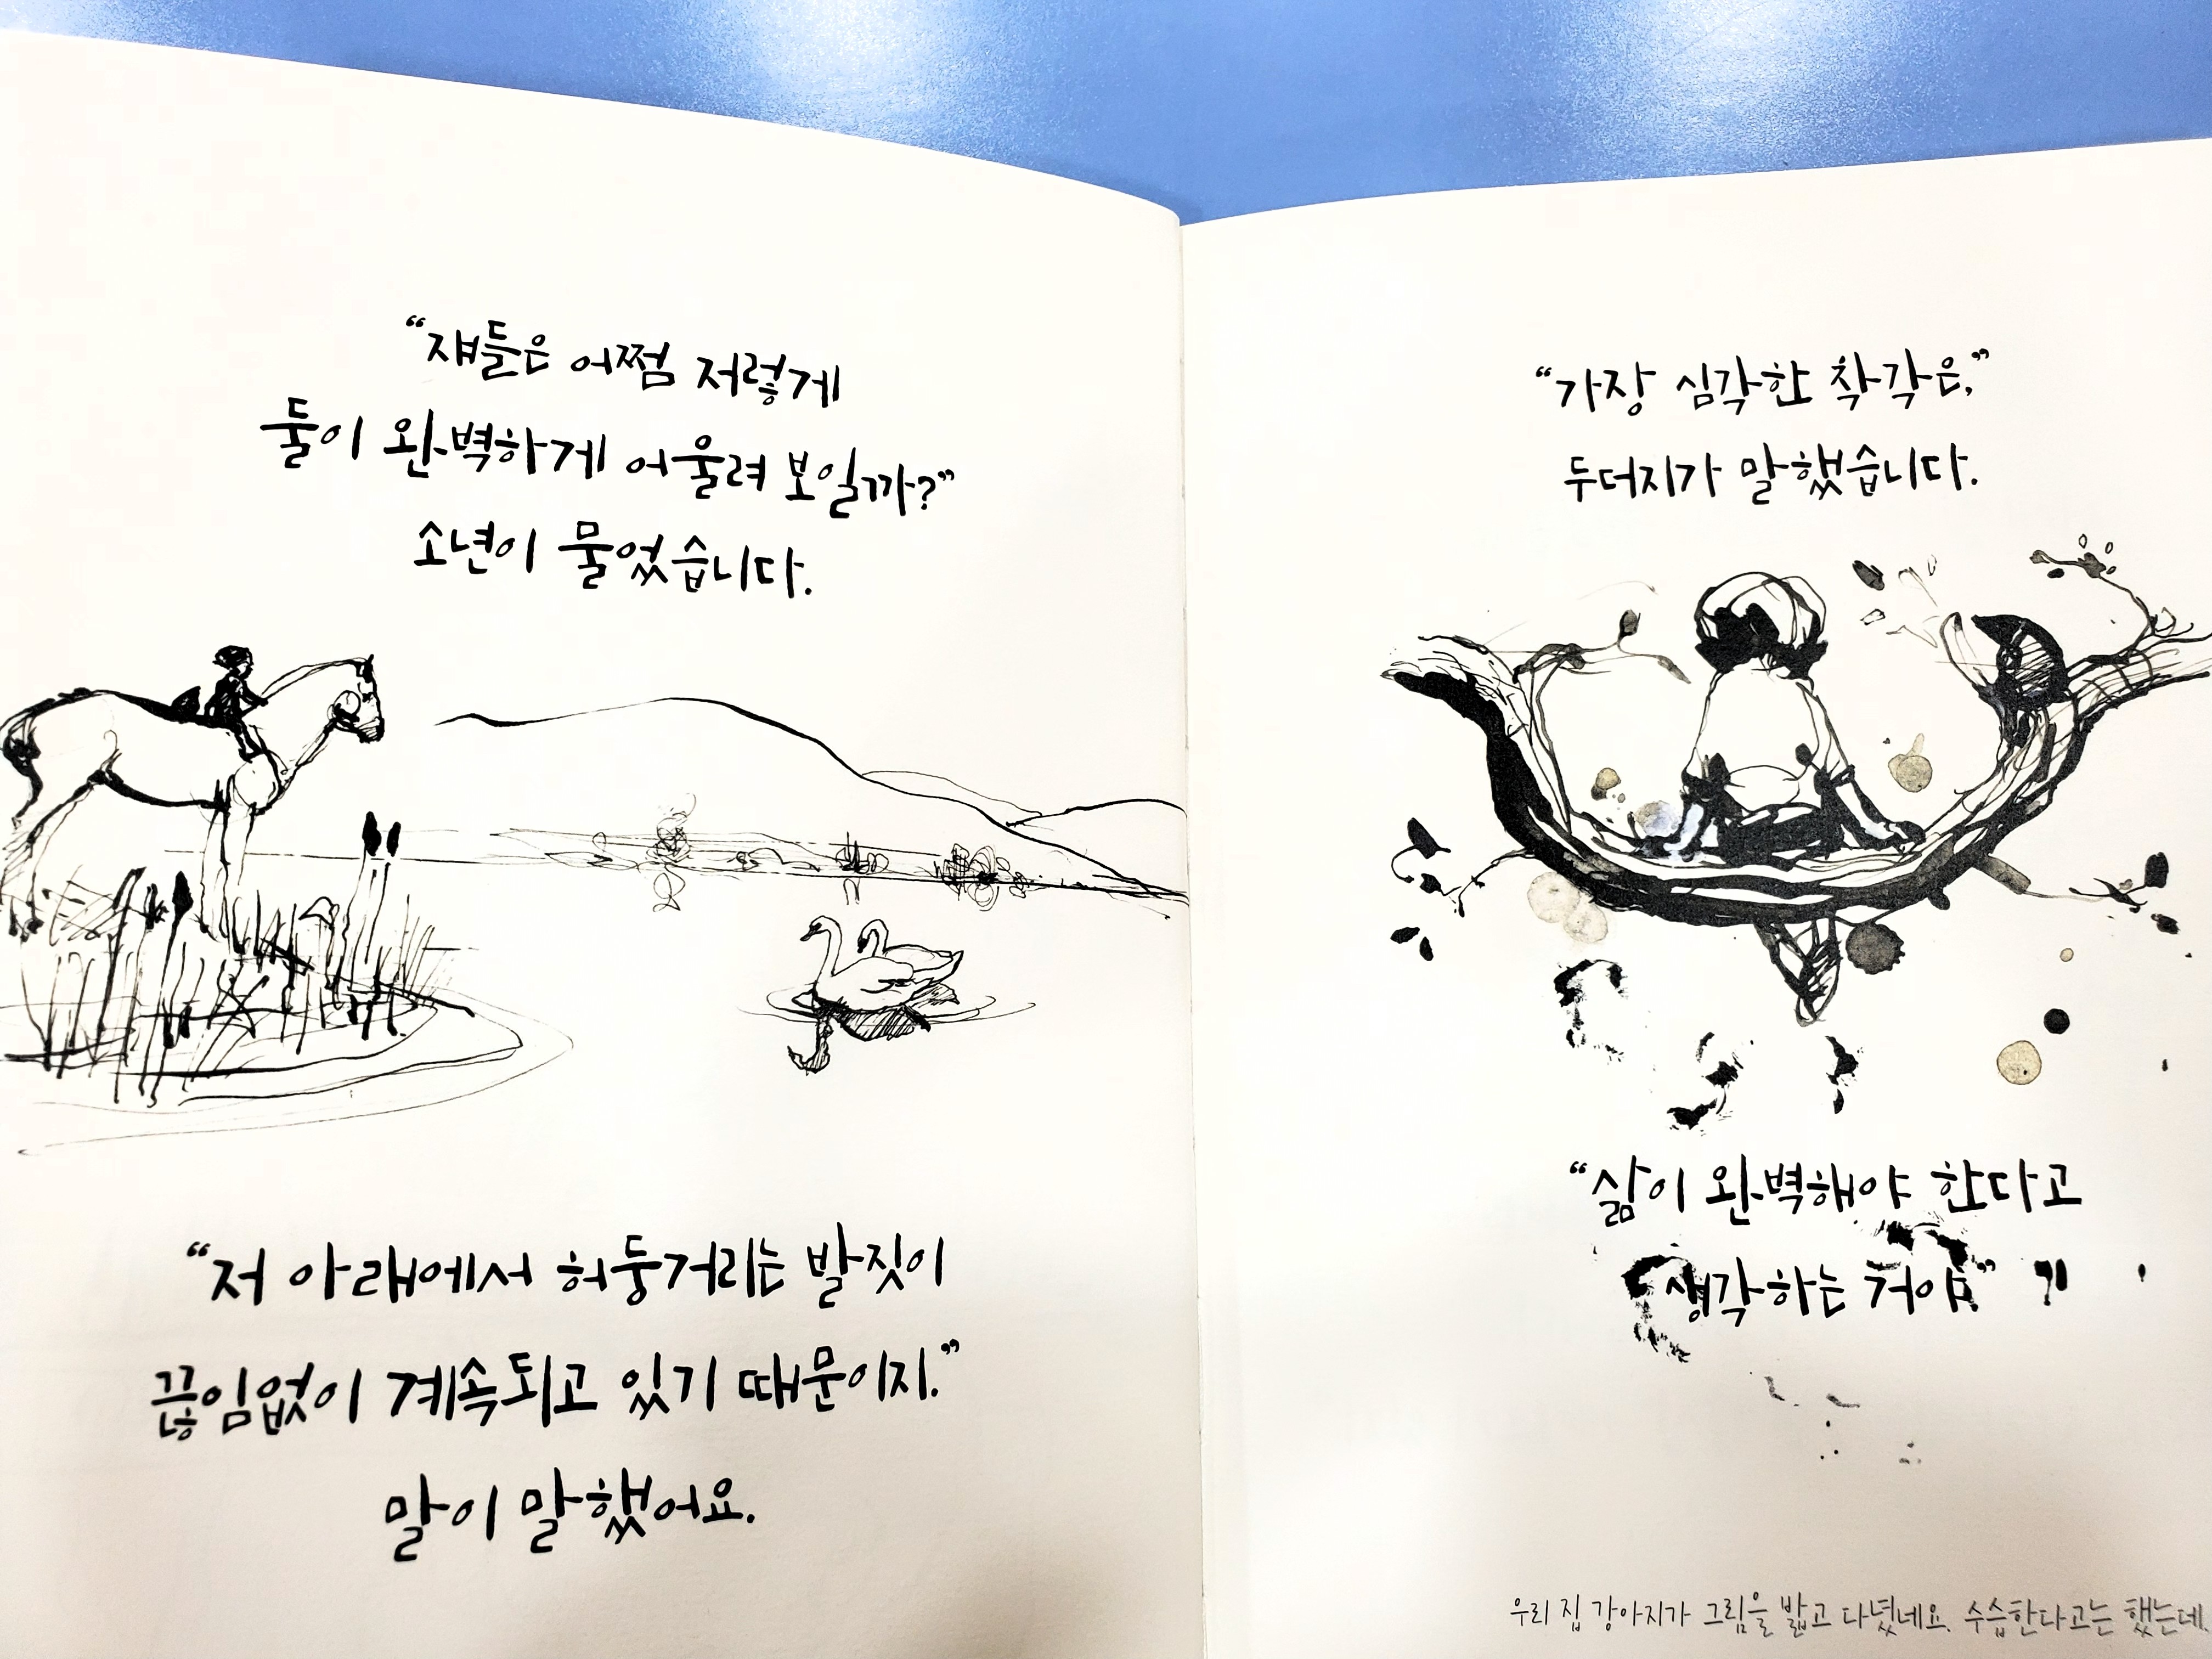 “쟤들은 어쩜 저렇게
둘이 완벽하게 어울려 보일까?”
소년이 물었습니다.
“저 아래에서 허둥거리는 발짓이
끊임없이 계속되고 있기 때문이지.”
말이 말했어요.
“가장 심각한 착각은,”
두더지가 말했습니다.
“삶이 완벽해야 한다고
생각하는 거야.”
우리 집 강아지가 그림을 밟고 다녔네요. 수습한다고는 했는데.